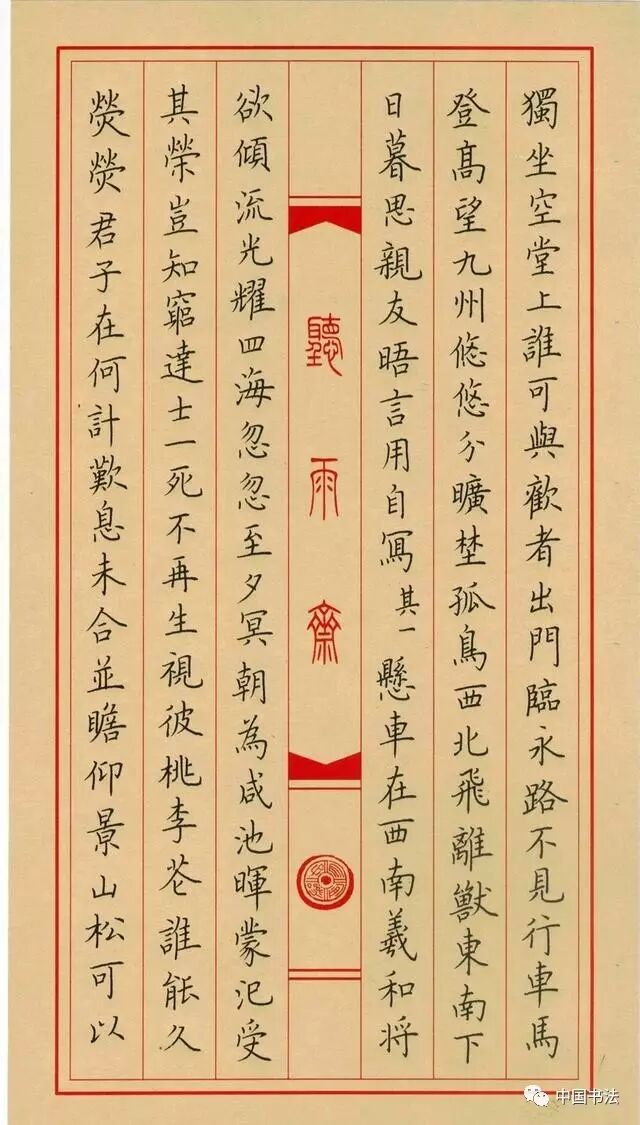 獨坐空堂上誰可與歡者出門臨永路不見行車馬
登高望九州悠悠分曠埜孤鳥西北飛離獸東南下
日暮思親友晤言用自寫其一懸車在西南羲和将
聽雨齋
欲傾流光耀四海忽忽至夕冥朝為咸池暉蒙汜受
其榮豈知窮達士一死不再生視彼桃李花誰能久
熒熒君子在何計歎息未合並瞻仰景山松可以
中国书法